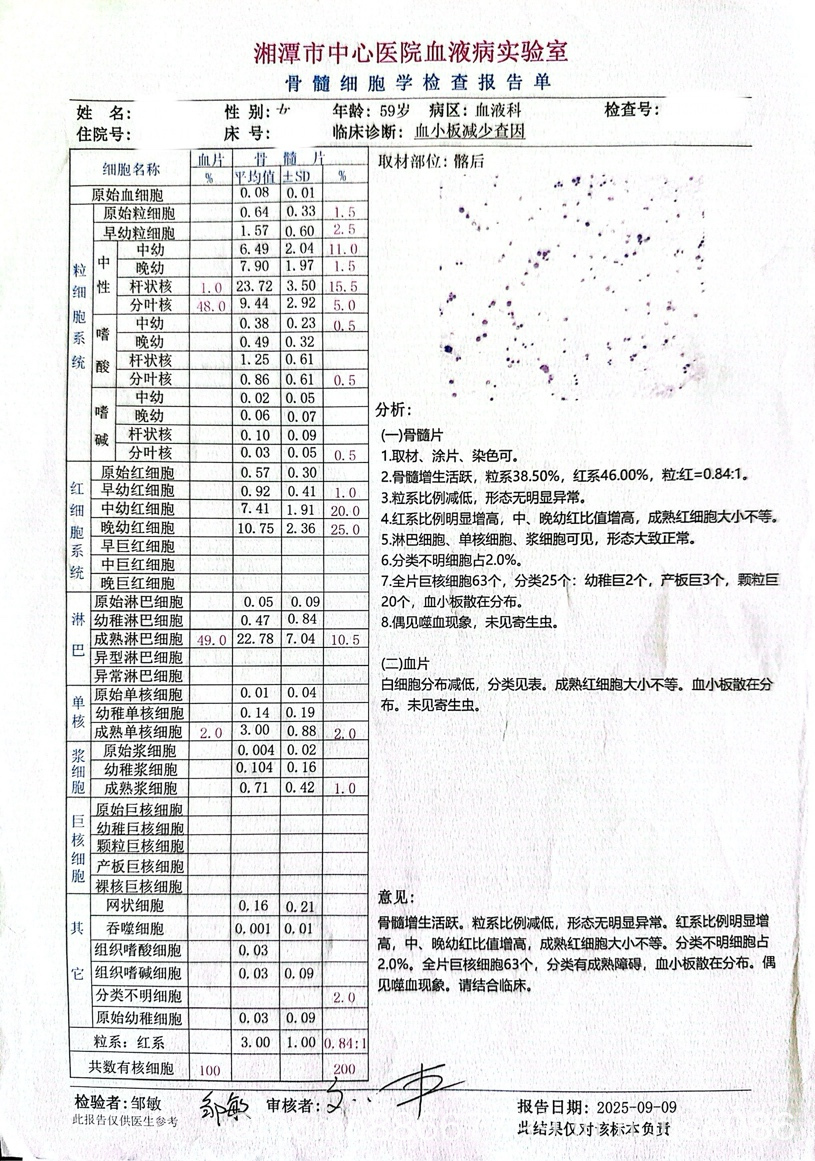 湘潭市中心医院血液病实验室
骨髓细胞学检查报告单
姓 名: 性 别: 女 年龄: 59岁 病区: 血液科 检查号:
住院号: 床 号: 临床诊断: 血小板减少查因
细胞名称 血片 骨 髓 片
% 平均值 ±SD %
原始血细胞 0.08 0.01
粒细胞系统
原始粒细胞 0.64 0.33 1.5
早幼粒细胞 1.57 0.60 2.5
中性
中幼 6.49 2.04 11.0
晚幼 7.90 1.97 1.5
杆状核 1.0 23.72 3.50 15.5
分叶核 48.0 9.44 2.92 5.0
嗜酸
中幼 0.38 0.23 0.5
晚幼 0.49 0.32
杆状核 1.25 0.61
分叶核 0.86 0.61 0.5
嗜碱
中幼 0.02 0.05
晚幼 0.06 0.07
杆状核 0.10 0.09
分叶核 0.03 0.05 0.5
红细胞系统
原始红细胞 0.57 0.30
早幼红细胞 0.92 0.41 1.0
中幼红细胞 7.41 1.91 20.0
晚幼红细胞 10.75 2.36 25.0
早巨红细胞
中巨红细胞
晚巨红细胞
淋巴
原始淋巴细胞 0.05 0.09
幼稚淋巴细胞 0.47 0.84
成熟淋巴细胞 49.0 22.78 7.04 10.5
异型淋巴细胞
异常淋巴细胞
单核
原始单核细胞 0.01 0.04
幼稚单核细胞 0.14 0.19
成熟单核细胞 2.0 3.00 0.88 2.0
浆细胞
原始浆细胞 0.004 0.02
幼稚浆细胞 0.104 0.16
成熟浆细胞 0.71 0.42 1.0
巨核细胞
原始巨核细胞
幼稚巨核细胞
颗粒巨核细胞
产板巨核细胞
裸核巨核细胞
其它
网状细胞 0.16 0.21
吞噬细胞 0.001 0.01
组织嗜酸细胞 0.03
组织嗜碱细胞 0.03 0.09
分类不明细胞 2.0
原始幼稚细胞 0.03 0.09
粒系: 红系 3.00 1.00 0.84:1
共数有核细胞 100 200
取材部位: 髂后
分析:
(一)骨髓片
1.取材、涂片、染色可。
2.骨髓增生活跃，粒系38.50%，红系46.00%，粒:红=0.84:1。
3.粒系比例减低，形态无明显异常。
4.红系比例明显增高，中、晚幼红比值增高，成熟红细胞大小不等。
5.淋巴细胞、单核细胞、浆细胞可见，形态大致正常。
6.分类不明细胞占2.0%。
7.全片巨核细胞63个，分类25个：幼稚巨2个，产板巨3个，颗粒巨
20个，血小板散在分布。
8.偶见噬血现象，未见寄生虫。
(二)血片
白细胞分布减低，分类见表。成熟红细胞大小不等。血小板散在分
布。未见寄生虫。
意见:
骨髓增生活跃。粒系比例减低，形态无明显异常。红系比例明显增
高，中、晚幼红比值增高，成熟红细胞大小不等。分类不明细胞占
2.0%。全片巨核细胞63个，分类有成熟障碍，血小板散在分布。偶
见噬血现象。请结合临床。
检验者: 邹敏 邹敏 审核者:
此报告仅供医生参考
报告日期: 2025-09-09
此结果仅对该标本负责